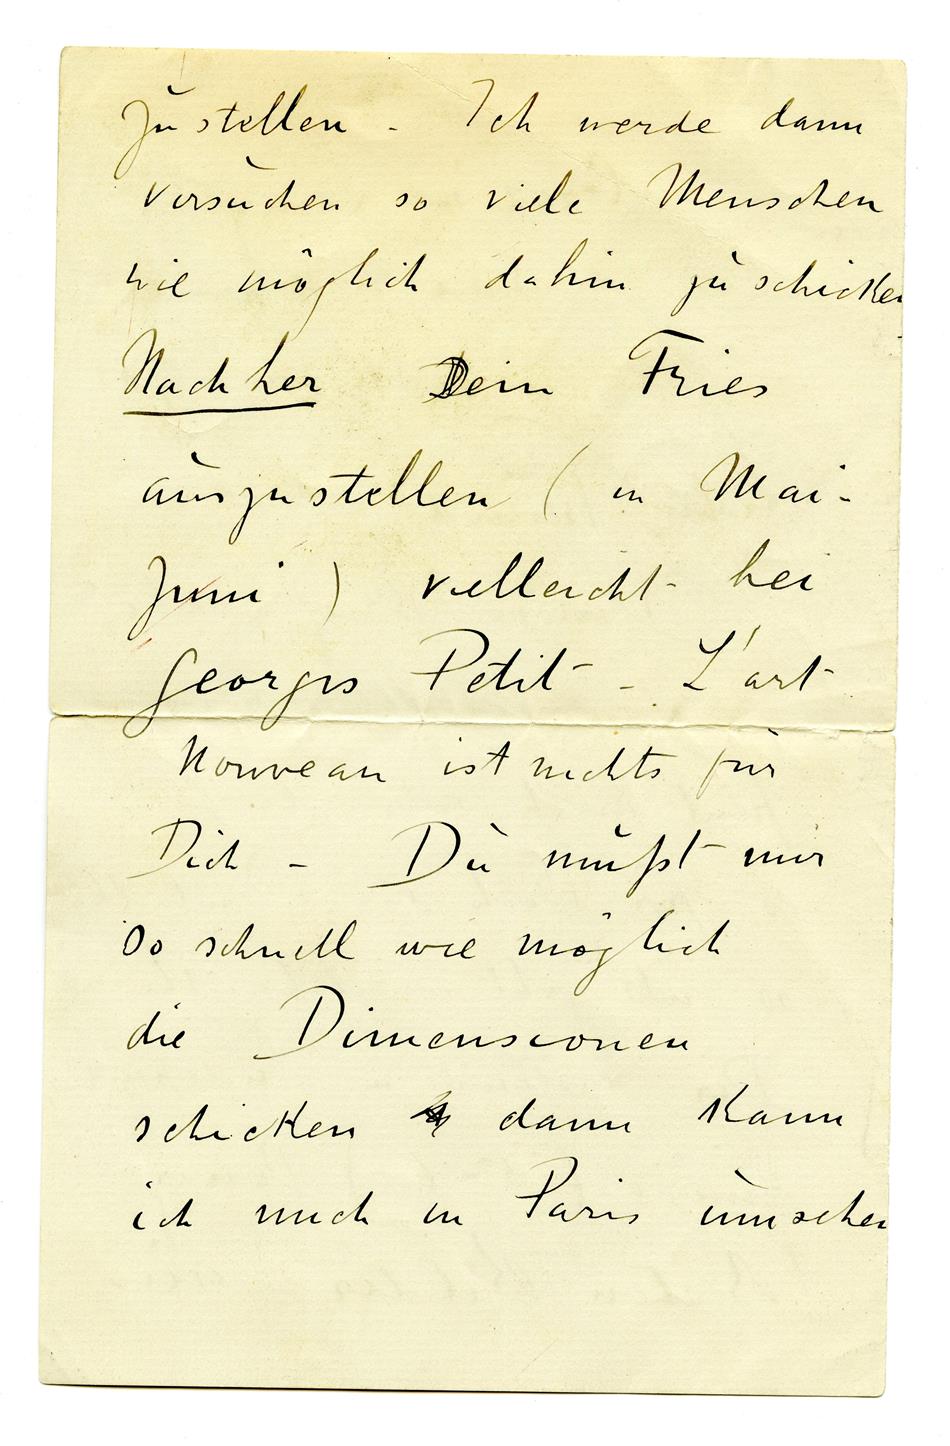 zu stellen - Ich werde dann
versuchen so viele Menschen
wie möglich dahin zu schicken
Nachher Dein Fries
auszustellen (in Mai-
Juni) vielleicht bei
Georges Petit - L'art
Nouveau ist nichts für
Dich - Du mußt mir
so schnell wie möglich
die Dimensionen
schicken dann kann
ich mich in Paris umsehen